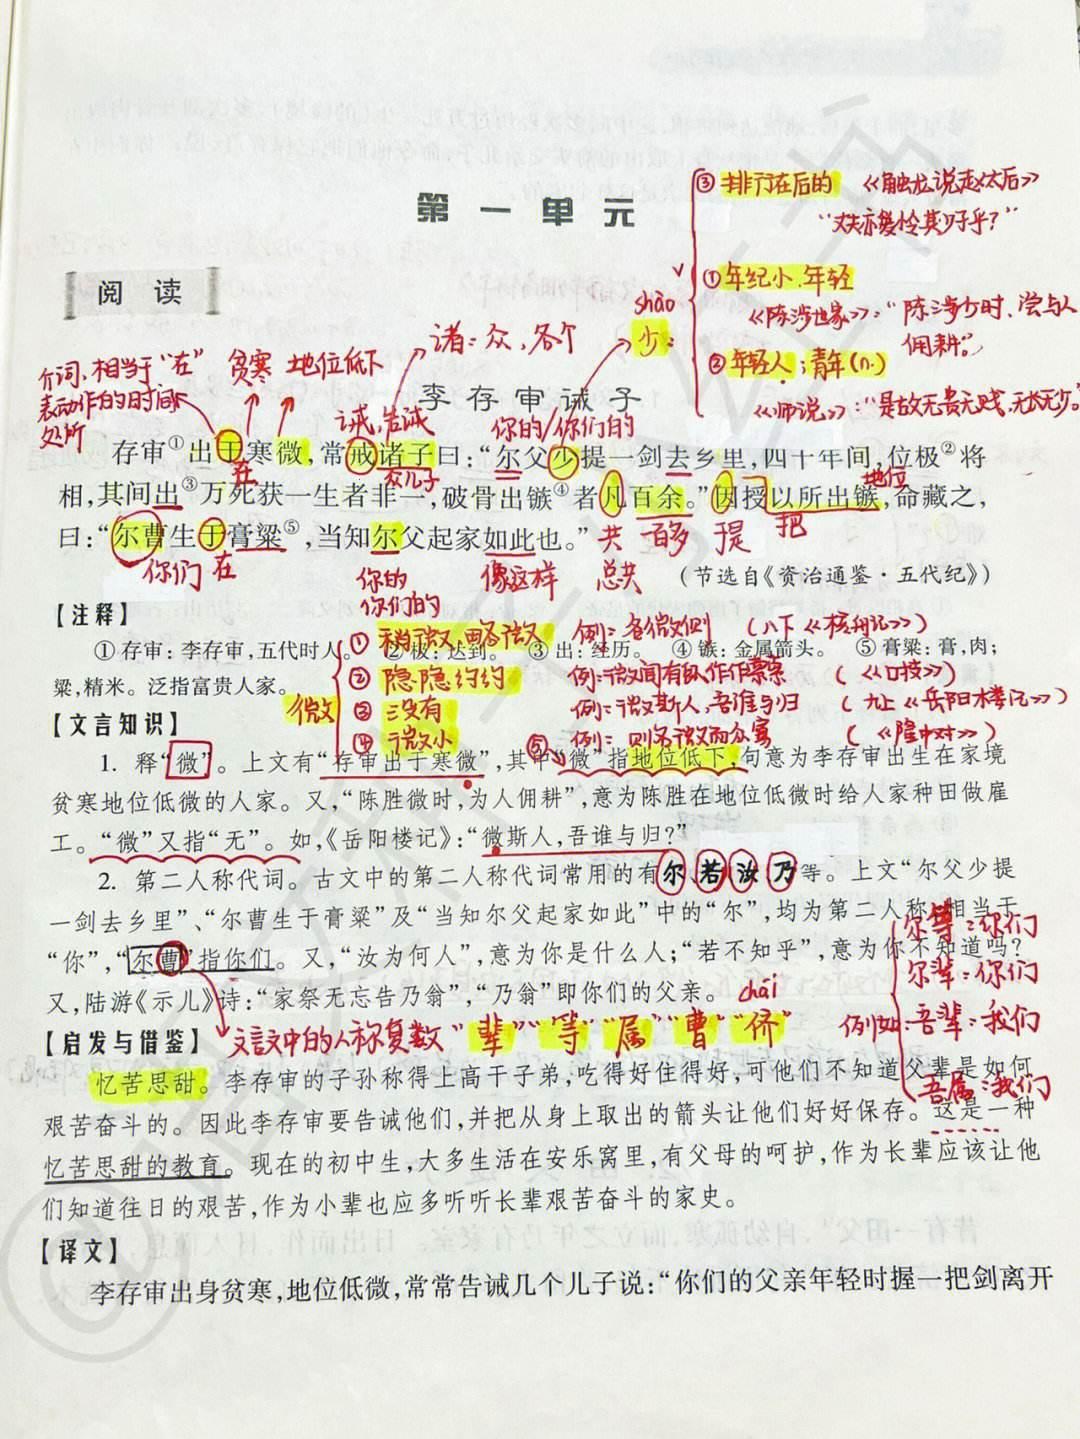 第一单元
③排行在后的 《触龙说赵太后》
“丈夫亦爱怜其少子乎？”
阅读
①年纪小、年轻
shào
《陈涉世家》：“陈涉少时，尝与人
佣耕。”
少：
②年轻人；青年(n.)
《师说》：“是故无贵无贱，无长无少。
诸：众，各个
介词，相当于“在” 贫寒 地位低下
表动作的时间、
处所
李存审诫子
诫，告诫
你的/你们的
存审①出于寒微，常戒诸子曰：“尔父少提一剑去乡里，四十年间，位极②将
在
众儿子
地位
相，其间出③万死获一生者非一，破骨出镞④者凡百余。”因授以所出镞，命藏之，
曰：“尔曹生于膏粱⑤，当知尔父起家如此也。”
共 百多 提 把
你们 在
你的
你们的
像这样 总共
（节选自《资治通鉴·五代纪》）
【注释】
①稍微、略微 例：各微则 （八下《核舟记》）
①存审：李存审，五代时人。 ②极：达到。 ③出：经历。 ④镞：金属箭头。 ⑤膏粱：膏，肉；
②隐隐约约 例：微闻有鼠作作索索 （《口技》）
粱，精米。泛指富贵人家。
微
③没有 例：微斯人，吾谁与归 （九上《岳阳楼记》）
【文言知识】
④微小 ⑤ 例：则名微而众寡 （《隆中对》）
1. 释“微”。上文有“存审出于寒微”，其中“微”指地位低下，句意为李存审出生在家境
贫寒地位低微的人家。又，“陈胜微时，为人佣耕”，意为陈胜在地位低微时给人家种田做雇
工。“微”又指“无”。如，《岳阳楼记》：“微斯人，吾谁与归？”
2. 第二人称代词。古文中的第二人称代词常用的有尔、若、汝、乃等。上文“尔父少提
一剑去乡里”、“尔曹生于膏粱”及“当知尔父起家如此”中的“尔”，均为第二人称，相当于
尔等：你们
“你”，“尔曹”指你们。又，“汝为何人”，意为你是什么人；“若不知乎”，意为你不知道吗？
尔辈：你们
又，陆游《示儿》诗：“家祭无忘告乃翁”，“乃翁”即你们的父亲。
chái
例如：吾辈：我们
【启发与借鉴】
文言文中的人称复数“辈”“等”“属”“曹”“侪”
忆苦思甜。李存审的子孙称得上高干子弟，吃得好住得好，可他们不知道父辈是如何
吾属：我们
艰苦奋斗的。因此李存审要告诫他们，并把从身上取出的箭头让他们好好保存。这是一种
忆苦思甜的教育。现在的初中生，大多生活在安乐窝里，有父母的呵护，作为长辈应该让他
们知道往日的艰苦，作为小辈也应多听听长辈艰苦奋斗的家史。
【译文】
李存审出身贫寒，地位低微，常常告诫几个儿子说：“你们的父亲年轻时握一把剑离开